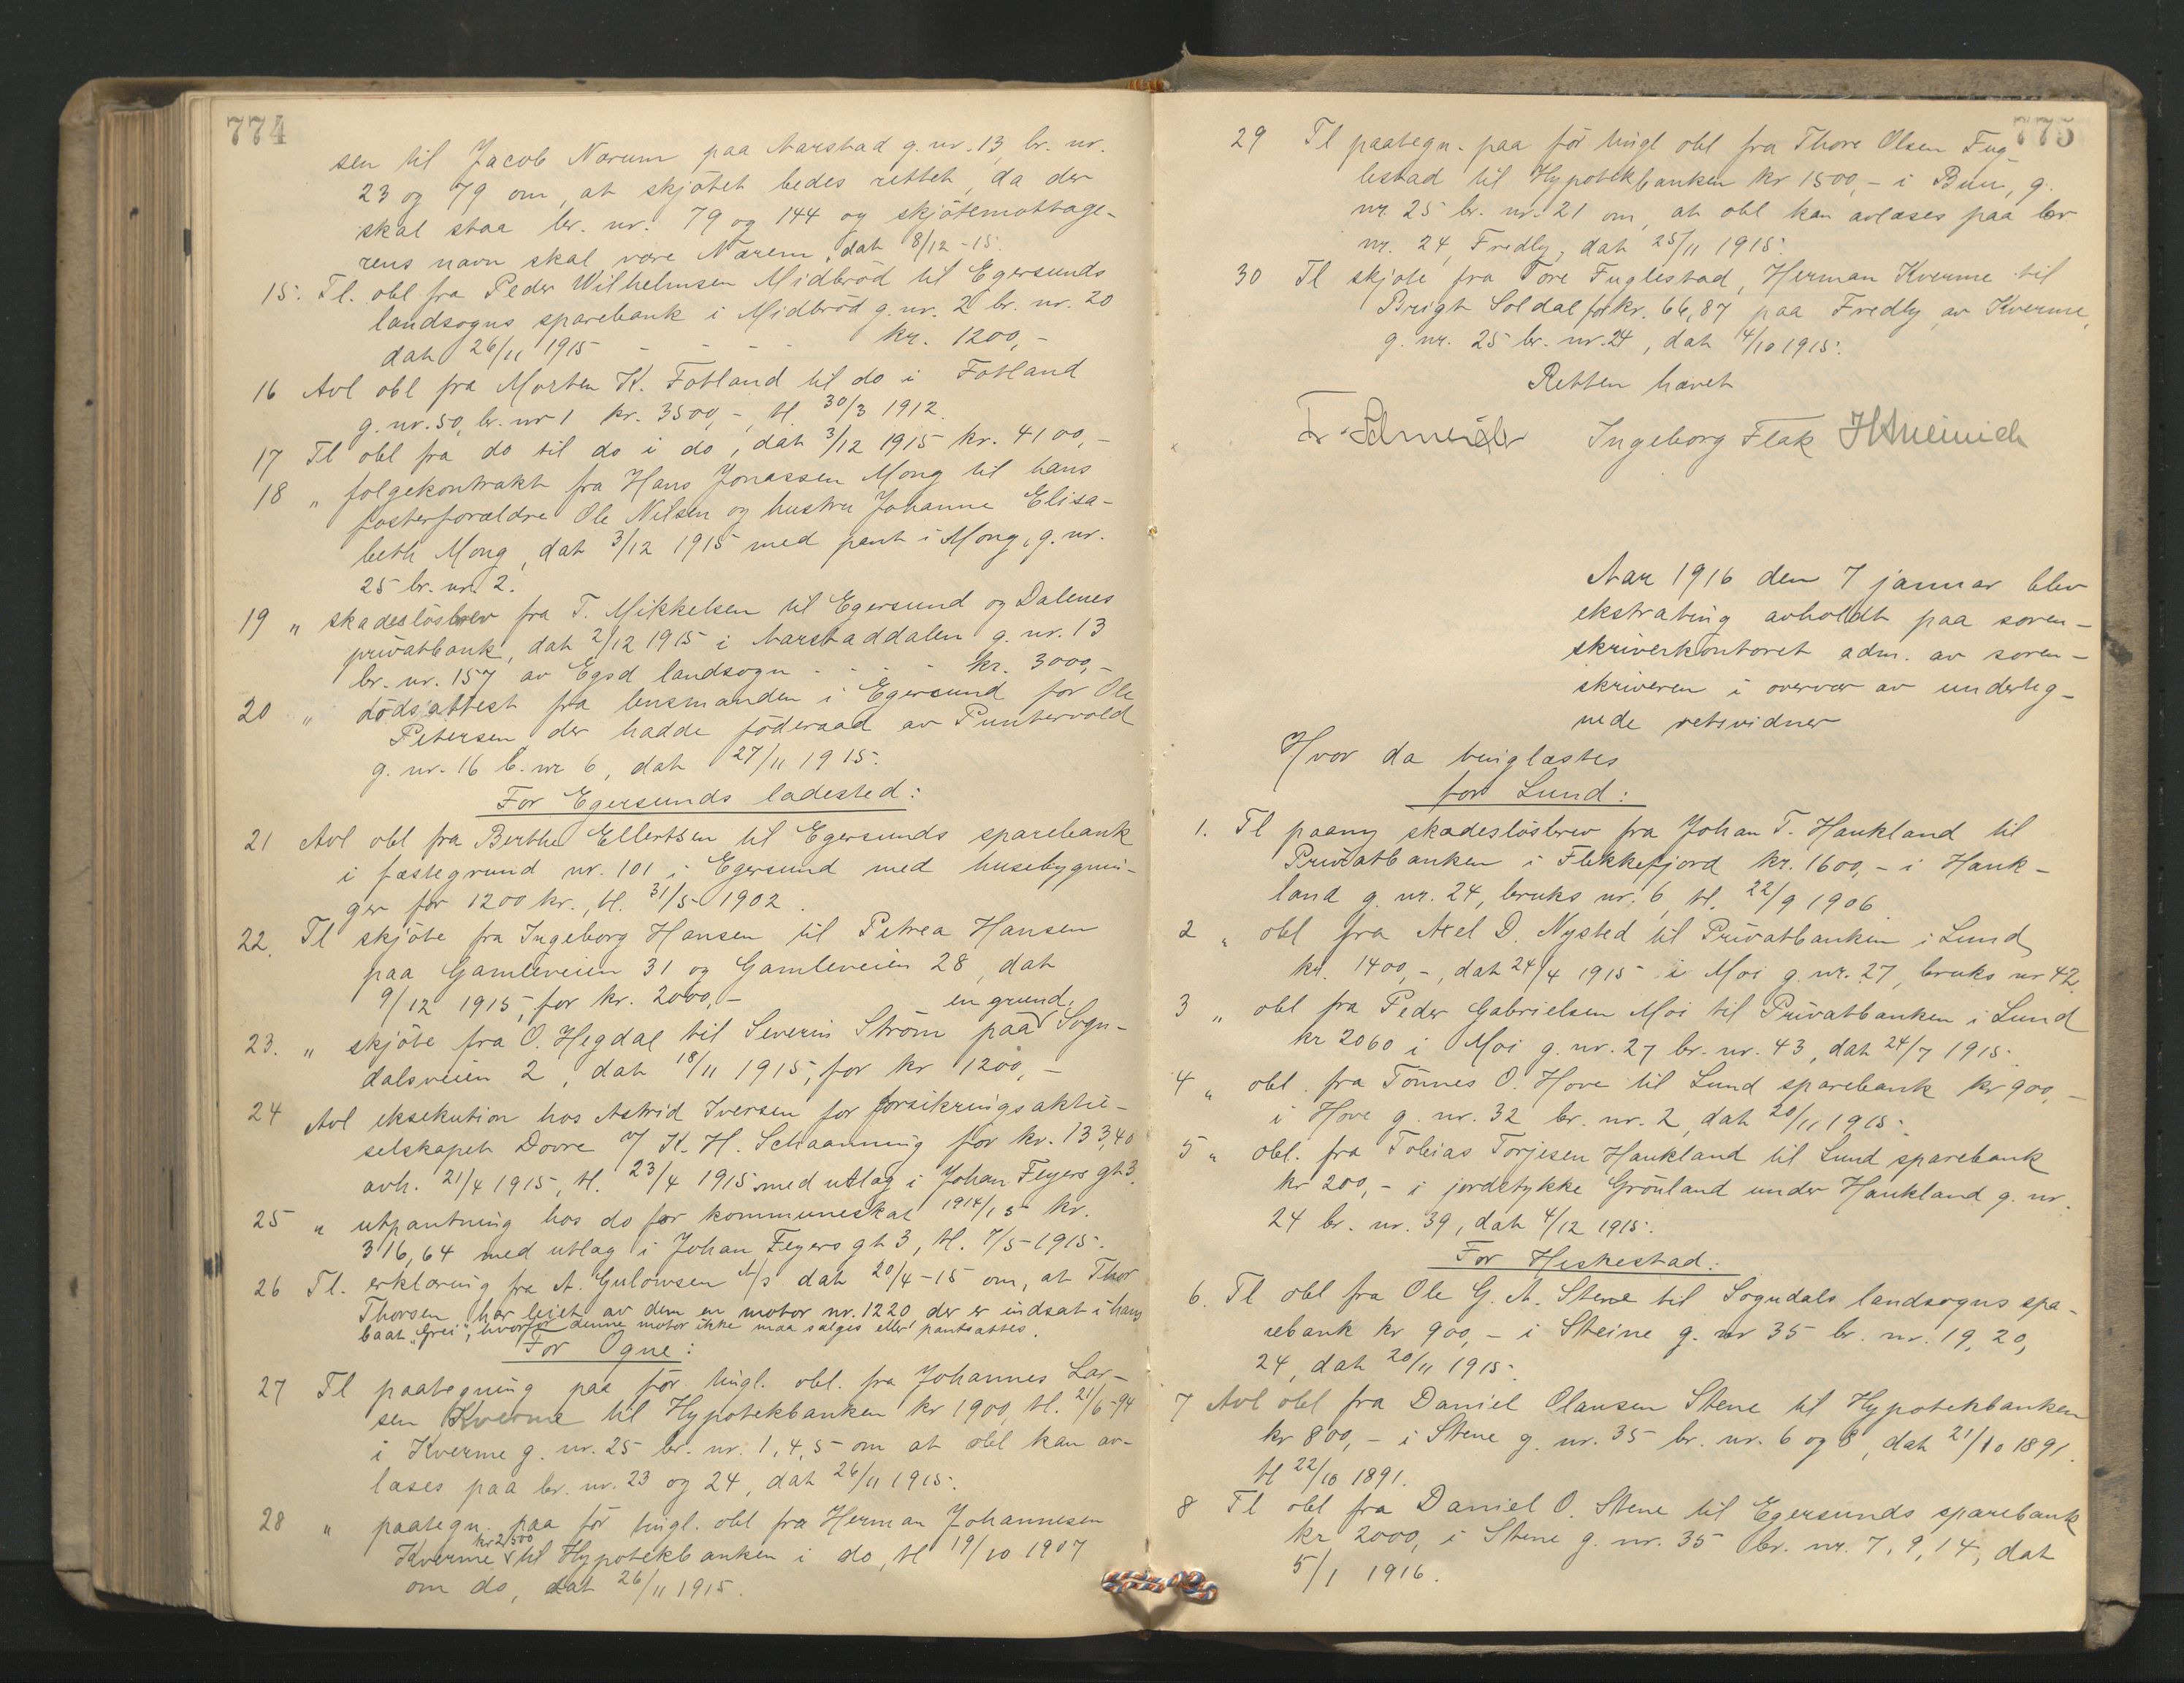 774
sen til Jacob Norum paa Aarstad g. nr. 13, br. nr.
23 og 79 om, at skjötet bedes rettet, da der
skal staa br. nr. 79 og 144 og skjötemottage-
rens navn skal være Nærem, dat 8/12 - 15.
15. Tl. obl fra Peder Wilhelmsen Midbröd til Egersunds
landsogns sparebank i Midbröd g. nr. 2 br. nr. 20
dat 26/11 1915 - - - - kr. 1200,-
16 Avl obl fra Morten K. Fotland til do i Fotland
g. nr. 50, br. nr 1 kr. 3500,-, tl. 30/3 1912.
17 Tl obl fra do til do i do, dat 3/12 1915 kr. 4100,-
18 " folgekontrakt fra Hans Jonassen Mong til hans
fosterforældre Ole Nilsen og hustru Johanne Elisa-
beth Mong, dat 3/12 1915 med pant i Mong, g. nr.
25 br. nr. 2.
19 " skadeslösbrev fra T. Mikkelsen til Egersund og Dalenes
privatbank, dat 2/12 1915 i Aarstaddalen g. nr. 13
br. nr. 157 av Egsd landsogn - - - - kr. 3000,-
20 " dödsattest fra lensmanden i Egersund for Ole
Petersen der hadde föderaad av Puntervold
g. nr. 16 b. nr 6, dat 27/11 1915.
For Egersunds ladested:
21 Avl obl fra Berthe Ellertsen til Egersunds sparebank
i fæstegrund nr. 101 i Egersund med husebygnin-
ger for 1200 kr., tl. 31/5 1902.
22. Tl skjöte fra Ingeborg Hansen til Petrea Hansen
paa Gamleveien 31 og Gamleveien 28, dat
9/12 1915, for kr. 2000,-
en grund,
23. " skjöte fra O. Hegdal til Severin Ström paa Sogn-
dalsveien 2, dat 18/11 1915, for kr 1200,-
24 Avl eksekution hos Astrid Iversen for forsikringsaktie-
selskapet Dovre v/ K. H. Schaanning for kr. 133,40
avh. 21/4 1915, tl. 23/4 1915 med utlag i Johan Feyers gt 3.
25 " utpantning hos do for kommuneskat 1914/15 kr.
316,64 med utlag i Johan Feyers gt 3, tl. 7/5 - 1915.
26 Tl. erklæring fra A. Gulowsen A/s dat 20/4 - 15 om, at Thor
Thorsen har leiet av dem en motor nr. 1220, der er indsat i hans
baat "Grei", hvorfor denne motor ikke maa sælges eller pantsættes.
For Ogne:
27 Tl paategning paa för tingl. obl. fra Johannes Lar-
sen Kverme til Hypotekbanken kr 1900, tl. 21/6 - 94
i Kverme g. nr. 25 br. nr. 1, 4, 5 om at obl kan av-
læses paa br. nr. 23 og 24, dat 26/11 1915.
28 " paategn. paa för tingl. obl fra Herman Johannesen
kr 2,500
Kverme til Hypotekbanken i do, tl 19/10 1907
om do, dat 26/11 1915.
775
29 Tl paategn. paa för tingl obl fra Thore Olsen Fug-
lestad til Hypotekbanken kr 1500,- i Buu, g.
nr. 25 br. nr. 21 om, at obl kan avlæses paa br
nr. 24, Fredly, dat 25/11 1915.
30 Tl skjøte fra Tore Fuglestad, Herman Kverme til
Brigt Soldal for kr. 66,87 paa Fredly av Kverme,
g. nr. 25 br. nr. 24, dat 4/10 1915.
Retten hævet
Fr. Schneider Ingeborg Flak
Aar 1916 den 7 januar blev
ekstrating avholdt paa soren-
skriverkontoret adm. av soren-
skriveren i overvær av underteg-
nede retsvidner
Hvor da tinglæstes
for Lund:
1. Tl paany skadeslösbrev fra Johan T. Haukland til
Privatbanken i Flekkefjord kr. 1600,- i Hauk-
land g. nr. 24, bruks nr. 6, tl. 22/9 1906
2 " obl fra Axel D. Nysted til Privatbanken i Lund
kr. 1400,-, dat 24/4 1915 i Moi g. nr. 27, bruks nr 42
3 " obl fra Peder Gabrielsen Moi til Privatbanken i Lund
kr 2060 i Moi g. nr. 27 br. nr. 43, dat 24/7 1915.
4 " obl. fra Tönnes O. Hove til Lund sparebank kr 900,-
i Hove g. nr. 32 br. nr. 2, dat 20/11 1915.
5 " obl. fra Tobias Torjesen Haukland til Lund sparebank
kr 200,- i jordstykke Grönland under Haukland g. nr.
24 br. nr. 39, dat 4/12 1915.
For Heskestad:
6. Tl obl fra Ole G. A. Stene til Sogndals landsogns spa-
rebank kr 900,- i Steine g. nr 35 br. nr. 19, 20,
24, dat 20/11 1915.
7 Avl obl fra Daniel Olausen Stene til Hypotekbanken
kr 800,- i Stene g. nr. 35 br. nr. 6 og 8, dat 21/10 1891.
tl 22/10 1891.
8 Tl obl fra Daniel O. Stene til Egersunds sparebank
kr 2000, i Stene g. nr. 35 br. nr. 7, 9, 14, dat
5/1 1916.